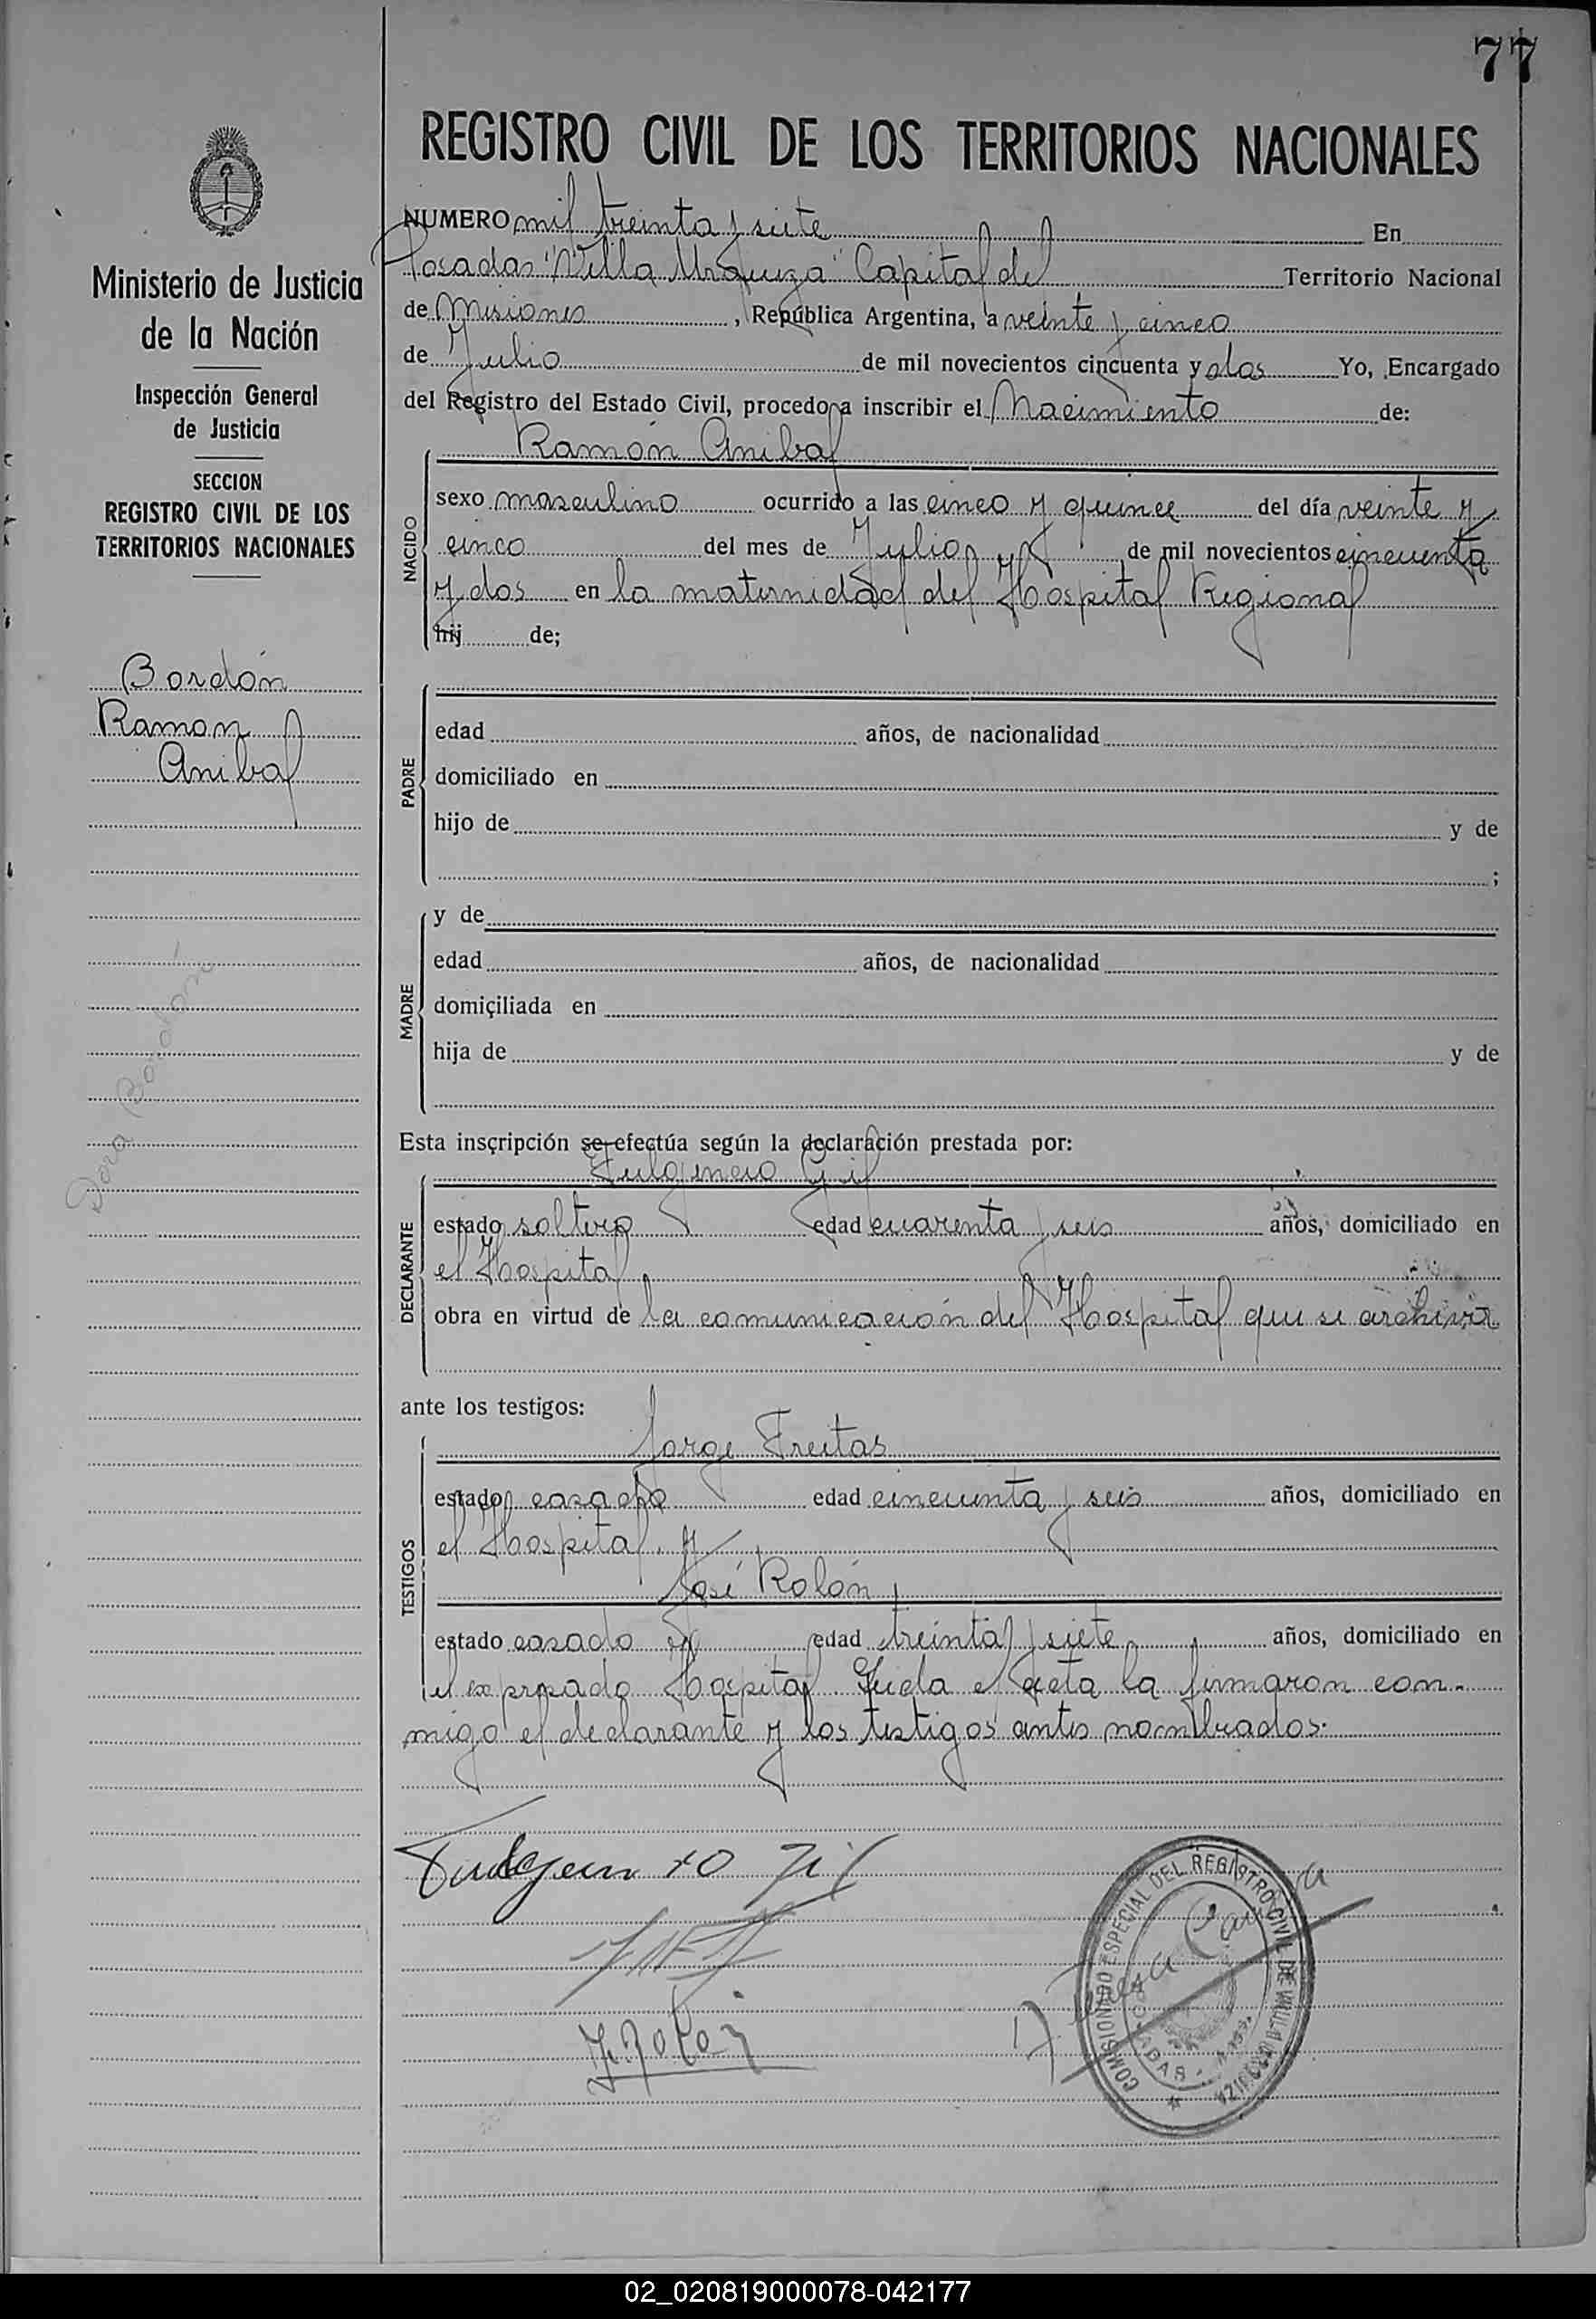 77
REGISTRO CIVIL DE LOS TERRITORIOS NACIONALES
Ministerio de Justicia
de la Nación
Inspección General
de Justicia
SECCION
REGISTRO CIVIL DE LOS
TERRITORIOS NACIONALES
Bordón
Ramon
Anibal
Dora Bordón
NUMERO mil treinta y siete En
Posadas "Villa Urquiza" Capital del Territorio Nacional
de Misiones, República Argentina, a veinte y cinco
de Julio de mil novecientos cincuenta y dos Yo, Encargado
del Registro del Estado Civil, procedo a inscribir el Nacimiento de:
NACIDO
Ramón Anibal
sexo masculino ocurrido a las cinco y quince del día veinte y
cinco del mes de Julio de mil novecientos cincuenta
y dos en la maternidad del Hospital Regional
hij de;
PADRE
edad años, de nacionalidad
domiciliado en
hijo de y de
;
MADRE
y de
edad años, de nacionalidad
domiciliada en
hija de y de
Esta inscripción se efectúa según la declaración prestada por:
DECLARANTE
Fulgencio Gil
estado soltero edad cuarenta y seis años, domiciliado en
el Hospital
obra en virtud de la comunicación del Hospital que se archiva
ante los testigos:
TESTIGOS
Jorge Freitas
estado casado edad cincuenta y seis años, domiciliado en
el Hospital y
José Rolón
estado casado edad treinta y siete años, domiciliado en
el expresado Hospital. Leida el acta la firmaron con-
migo el declarante y los testigos antes nombrados.
Fulgencio Gil
J. Rolón
COMISIONADO ESPECIAL DEL REGISTRO CIVIL DE VILLA URQUIZA
POSADAS
02_020819000078-042177